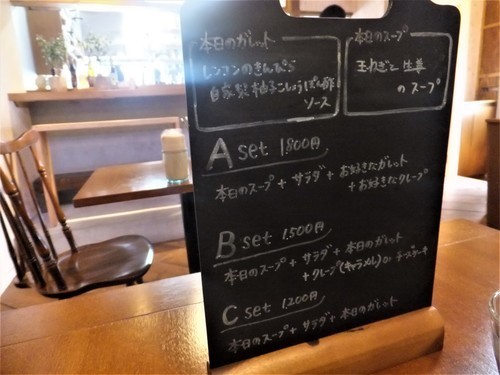 本日のガレット
レンコンのきんぴら
自家製柚子こしょうぽん酢
ソース
本日のスープ
玉ねぎと生姜
のスープ
A set 1.800円
本日のスープ + サラダ + お好きなガレット
+ お好きなクレープ
B set 1.500円
本日のスープ + サラダ + 本日のガレット
+ クレープ(キャラメル) or チーズケーキ
C set 1.200円
本日のスープ + サラダ + 本日のガレット